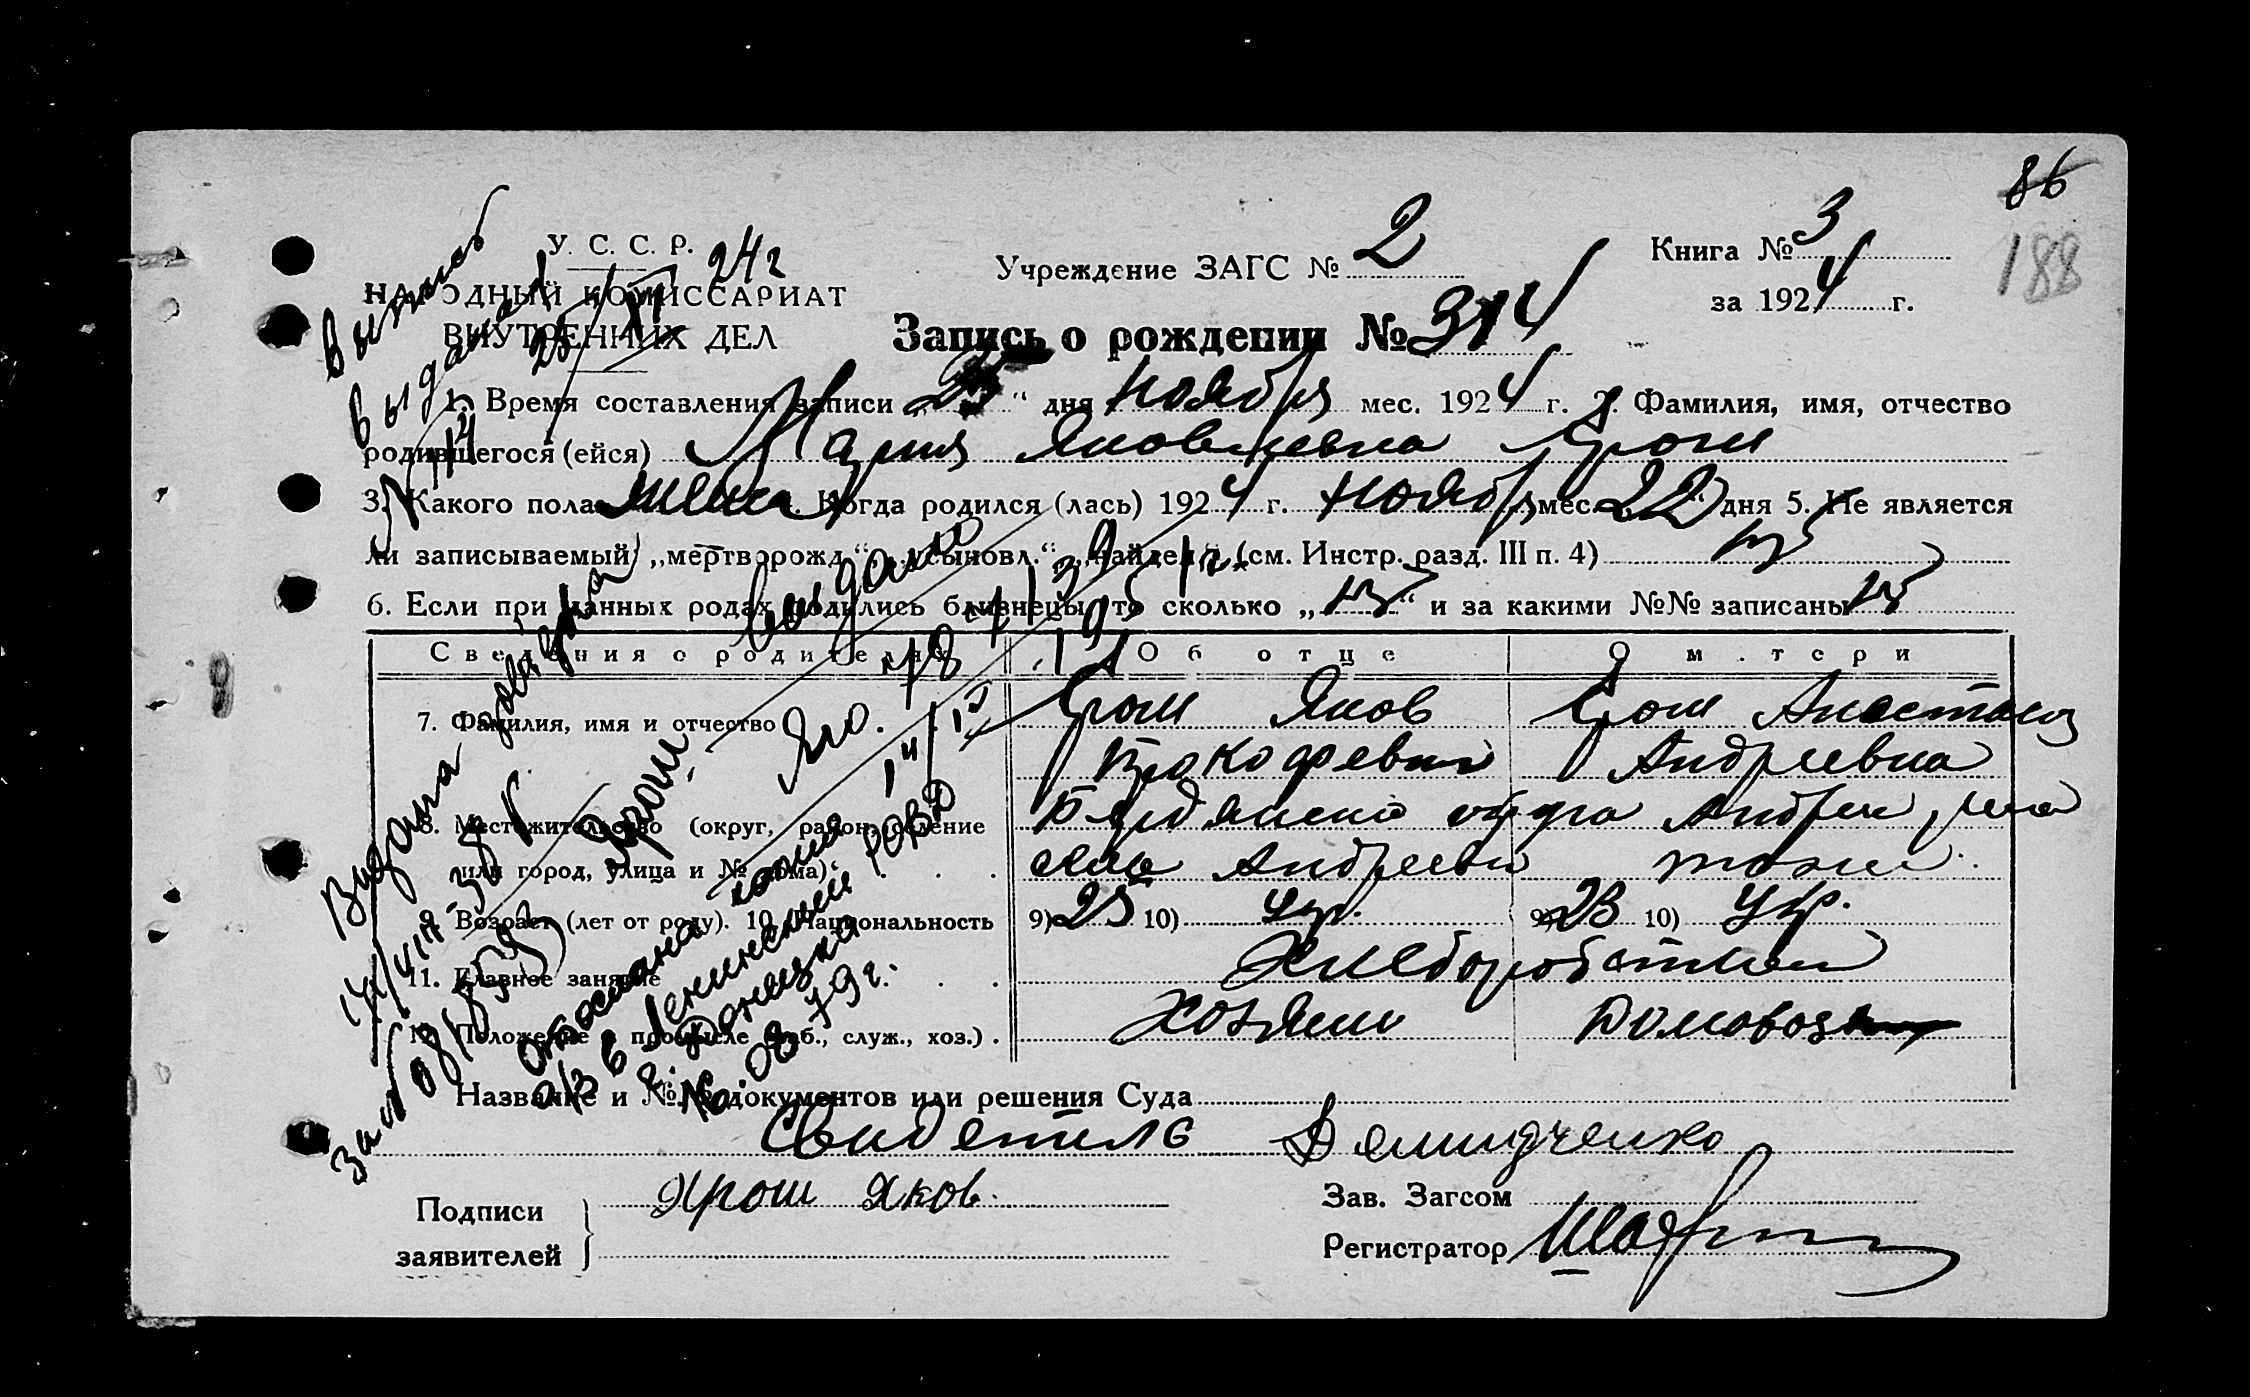 86
188
У. С. С. Р.
НАРОДНЫЙ КОМИССАРИАТ
ВНУТРЕННИХ ДЕЛ
Учреждение ЗАГС № 2
Книга № 3
за 1924 г.
Запись о рождении № 314
1. Время составления записи „25“ дня ноября мес. 1924 г. 2. Фамилия, имя, отчество
родившегося (ейся) Мария Яковлевна Ярош
3. Какого пола женск 4. Когда родился (лась) 1924 г. ноября мес. 22 дня 5. Не является
ли записываемый „мертворожд.“ „усыновл.“ „найден.“ (см. Инстр. разд. III п. 4)
6. Если при данных родах родились близнецы, то сколько „ “ и за какими №№ записаны
Сведения о родителях
Об отце
О матери
7. Фамилия, имя и отчество
Ярош Яков
Прокофевич
Ярош Анастасия
Андреевна
8. Местожительство (округ, район, селение
или город, улица и № дома)
Бердянско округа Андреев, рна
село Андреевка
тоже
9. Возраст (лет от роду). 10. Национальность
9) 25 10) Укр.
9) 23 10) Укр.
11. Главное занятие
Хлеборобством
12. Положение в промысле (раб., служ., хоз.)
хозяин
Домовоз
Название и №№ документов или решения Суда
Свидетель Демидченко
Подписи заявителей
Ярош Яков.
Зав. Загсом
Регистратор
Выпись
выдана
25/XI 24г
№ 112
Видана довідка
14/VIII-38 г.
выдано
Ярош
Яко.
отослана копия
а/з в Ленинский РОВД
г. Донецка
16.08.79г.